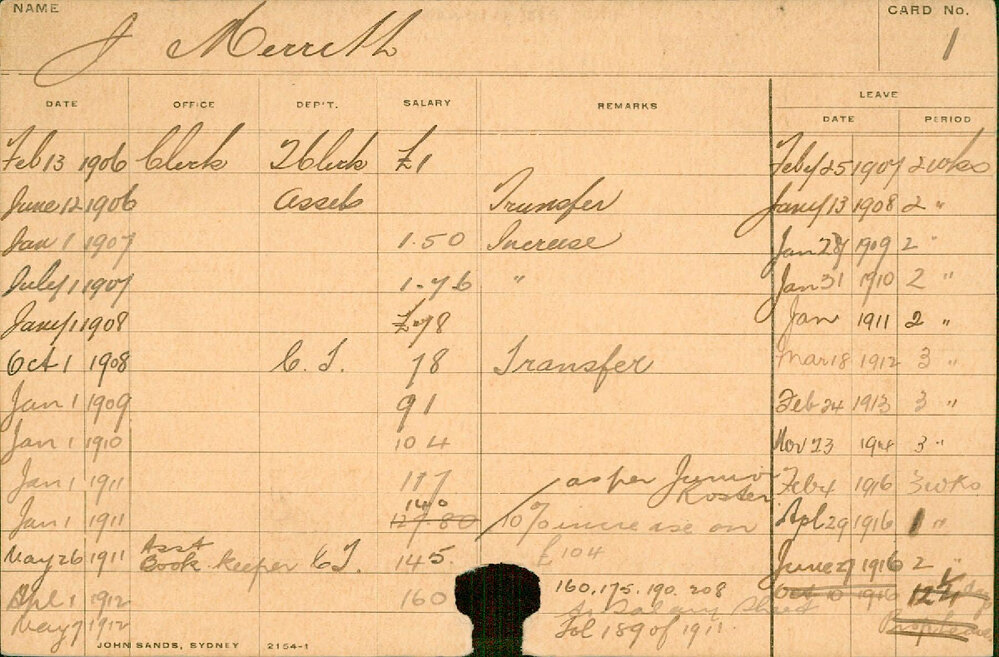 NAME CARD No.
J Merrett 1
DATE OFFICE DEP'T. SALARY REMARKS LEAVE
DATE PERIOD
Feb 13 1906 Clerk £1 Feby 25 1907 2 wks
June 12 1906 Assets Transfer Jany 13 1908 2 "
Jan 1 1907 1.50 Increase Jan 28 1909 2 "
July 1 1907 1-7-6 " Jan 31 1910 2 "
Jany 1 1908 £78 Jan 1911 2 "
Oct 1 1908 C. T. 78 Transfer Mar 18 1912 3 "
Jan 1 1909 91 Feb 24 1913 3 "
Jan 1 1910 104 Nov 23 1914 3 "
Jan 1 1911 117 as per Junior Roster Feb 4 1916 3 wks
Jan 1 1911 140 127.80 10% increase on Apl 29 1916 1 "
May 26 1911 Asst Book keeper C.T. 145 £104 June 29 1916 2 "
Apl 1 1912 160 160. 175. 190. 208 Oct 10 1916 12
May 7 1912 As Salary Sheet
Fol 189 of 1911
JOHN SANDS, SYDNEY 2154-1